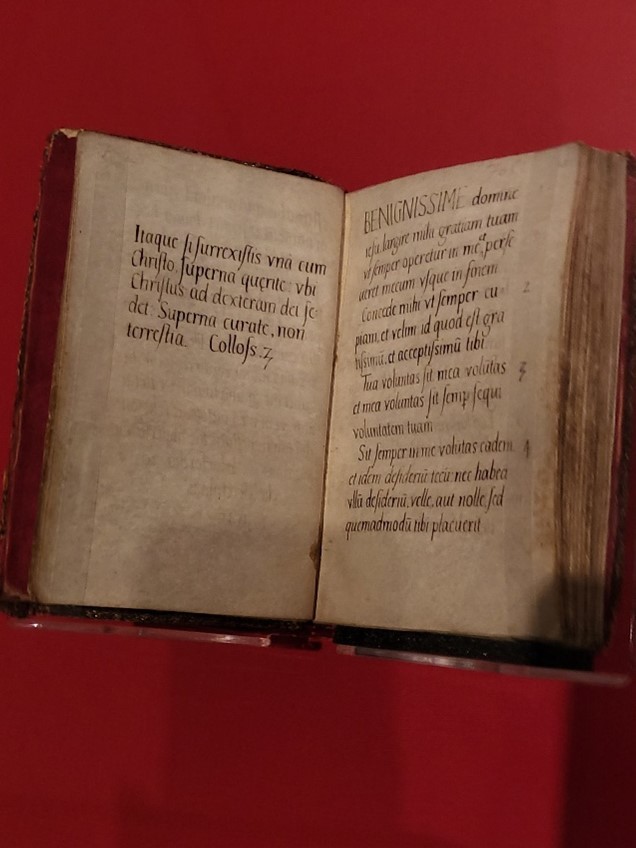 Itaque ſi ſurrexiſtis vnà cum
Chriſto, ſuperna quęrite: vbi
Chriſtus ad dexteram dei ſe-
det. Superna curate, non
terreſtia. Colloſs. 3
BENIGNISSIME domine
ieſu, largire mihi gratiam tuam
vt ſemper operetur in me, a perſe
ueret mecum vſque in finem.
Concede mihi vt ſemper cu- 2
piam, et velim id quod eſt gra
tiſsimũ, et acceptiſsimũ tibi.
Tua voluntas ſit mea volũtas 3
et mea voluntas ſit ſemp ſequi
voluntatem tuam
Sit ſemper in me volũtas eadem 4
et idem deſideriũ tecũ: nec habeã
vllũ deſideriũ, velle, aut nolle, ſed
quemadmodũ tibi placuerit